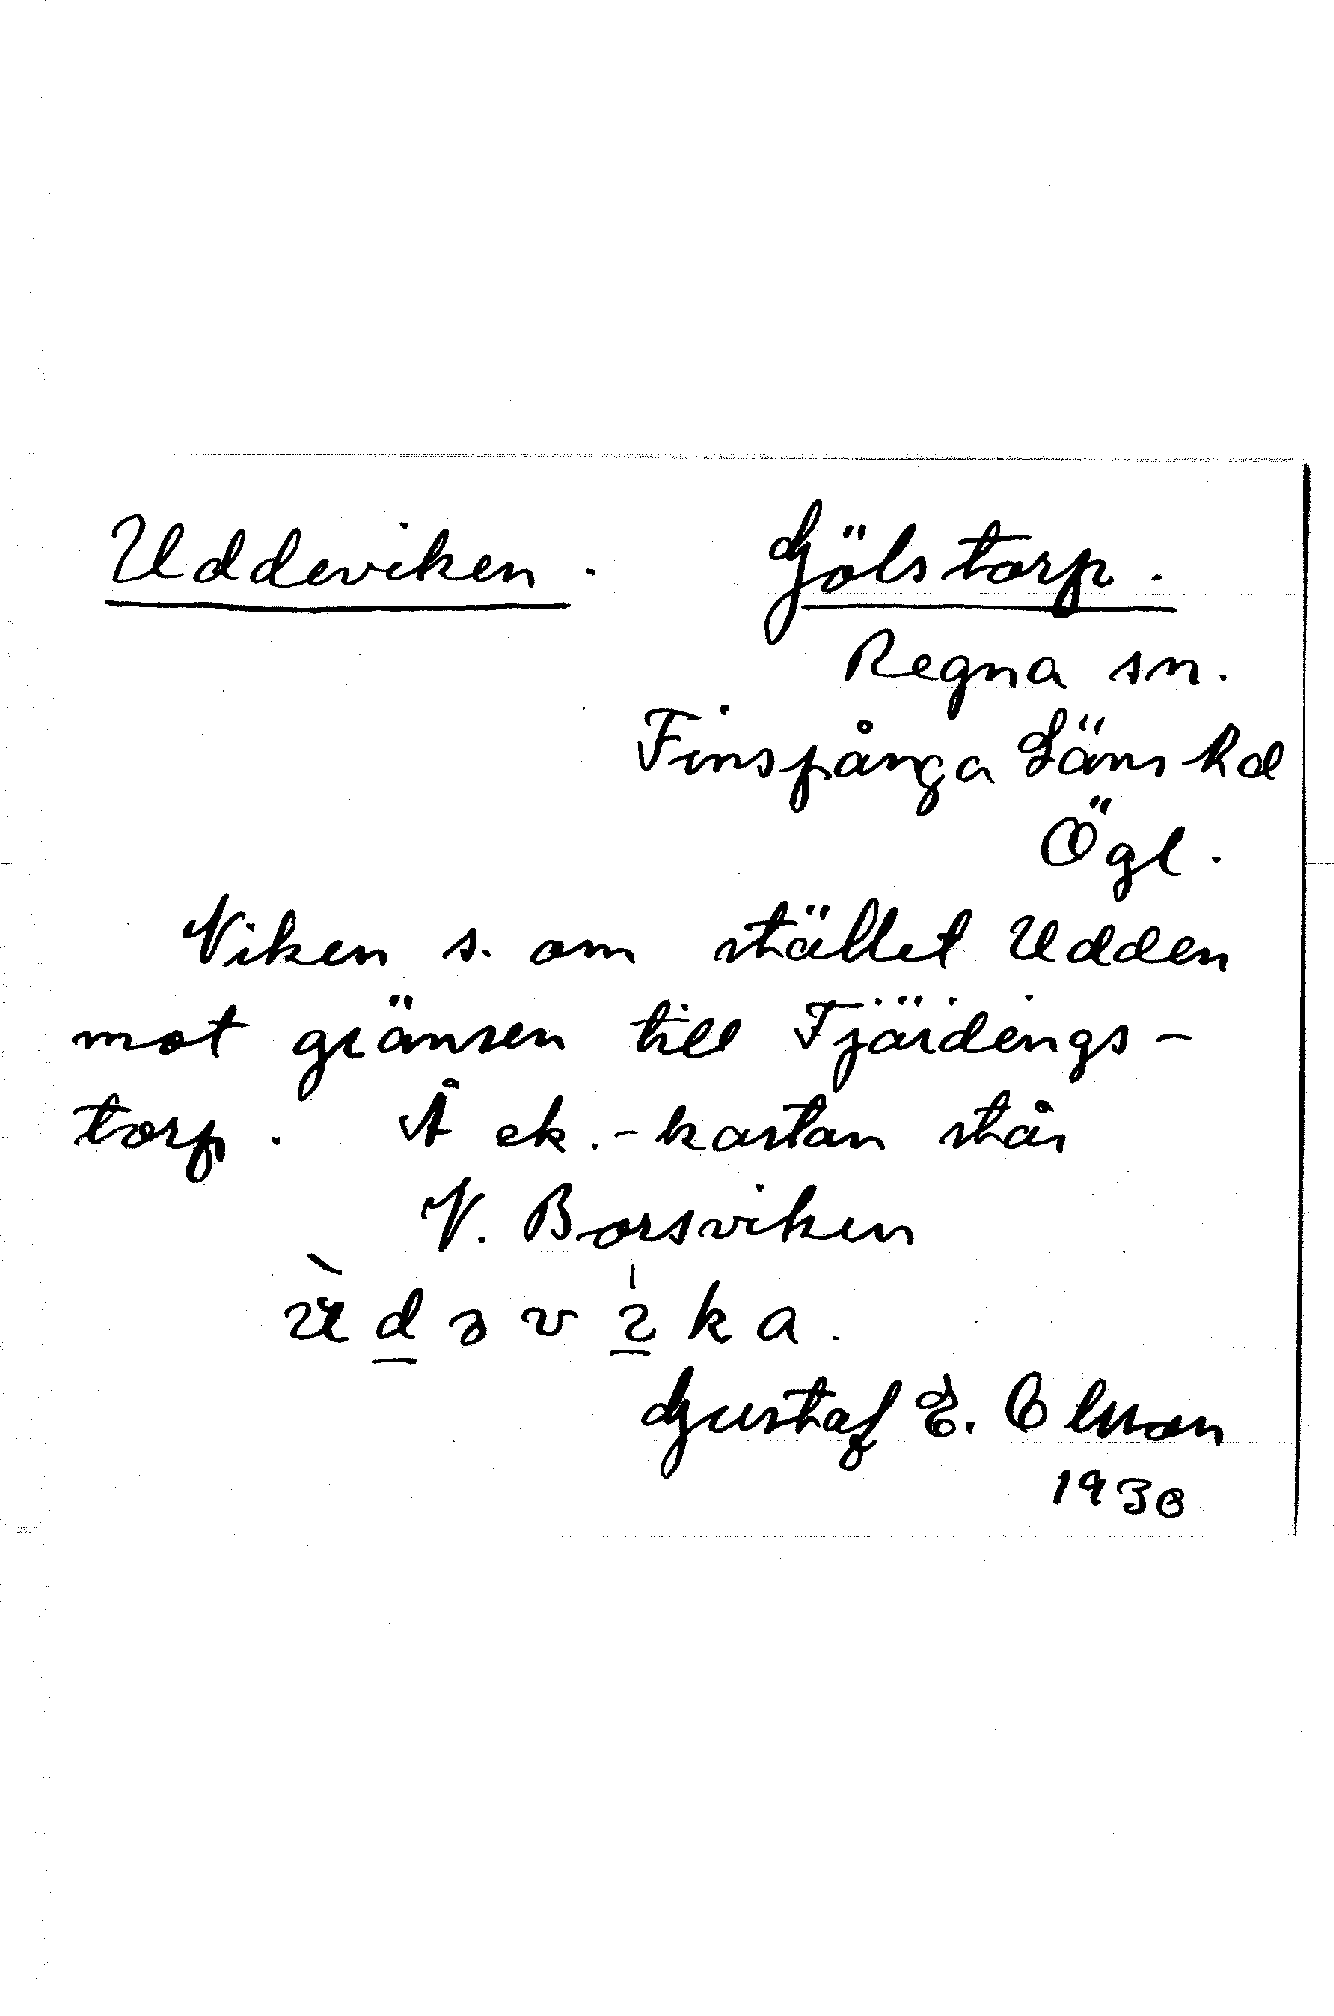 Uddeviken. Gölstorp.
Regna sn.
Finspånga Läns hd
Ögl.
Viken s. om stället Udden
mot gränsen till Fjärdings-
torp. Å ek.-kartan står
V. Borsviken
ùdəvika.
Gustaf E. Olsson
1930